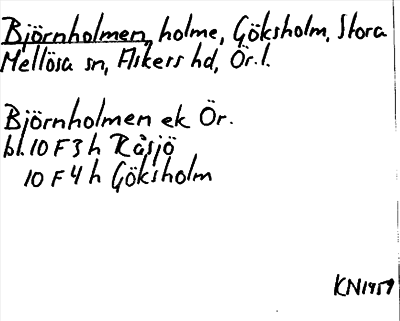 Björnholmen, holme, Göksholm, Stora
Mellösa sn, Askers hd, Ör. l.
Björnholmen ek Ör.
bl. 10 F 3 h Råsjö
10 F 4 h Göksholm
KN 1959